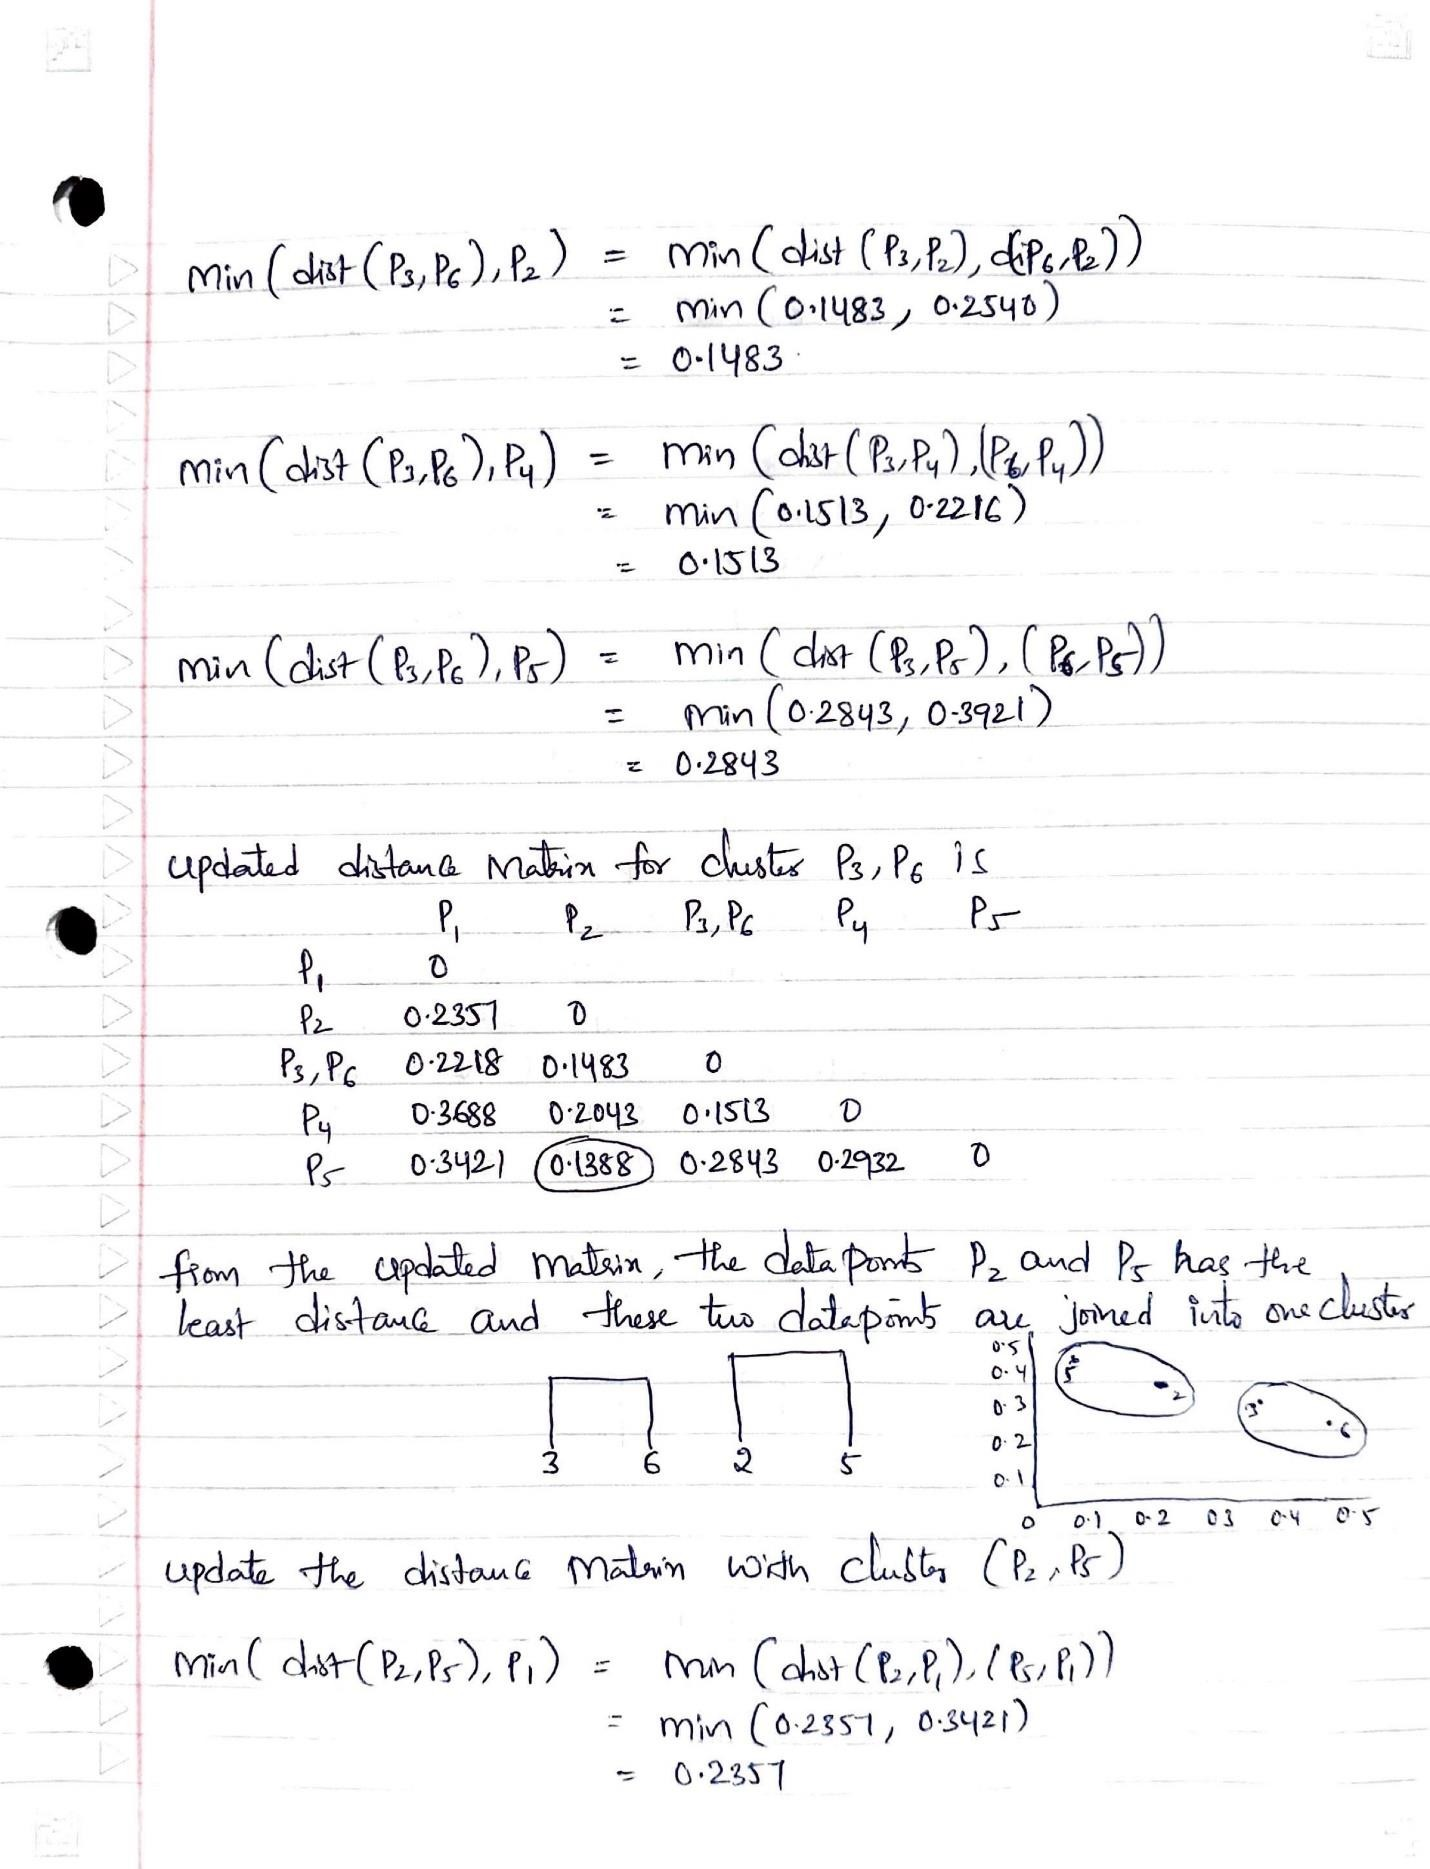 min (dist (P3, P6), P2) = min (dist (P3, P2), d(P6, P2))
= min (0.1483, 0.2540)
= 0.1483
min (dist (P3, P6), P4) = min (dist (P3, P4), (P6, P4))
= min (0.1513, 0.2216)
= 0.1513
min (dist (P3, P6), P5) = min (dist (P3, P5), (P6, P5))
= min (0.2843, 0.3921)
= 0.2843
updated distance matrix for cluster P3, P6 is
P1 P2 P3, P6 P4 P5
P1 0
P2 0.2357 0
P3, P6 0.2218 0.1483 0
P4 0.3688 0.2043 0.1513 0
P5 0.3421 0.1388 0.2843 0.2932 0
from the updated matrix, the data points P2 and P5 has the
least distance and these two datapoints are joined into one cluster
0.5
0.4 5
2
0.3 3
6
0.2
3 6 2 5
0.1
0 0.1 0.2 03 0.4 0.5
update the distance matrix with cluster (P2, P5)
min( dist (P2, P5), P1) = min (dist (P2, P1), (P5, P1))
= min (0.2357, 0.3421)
= 0.2357